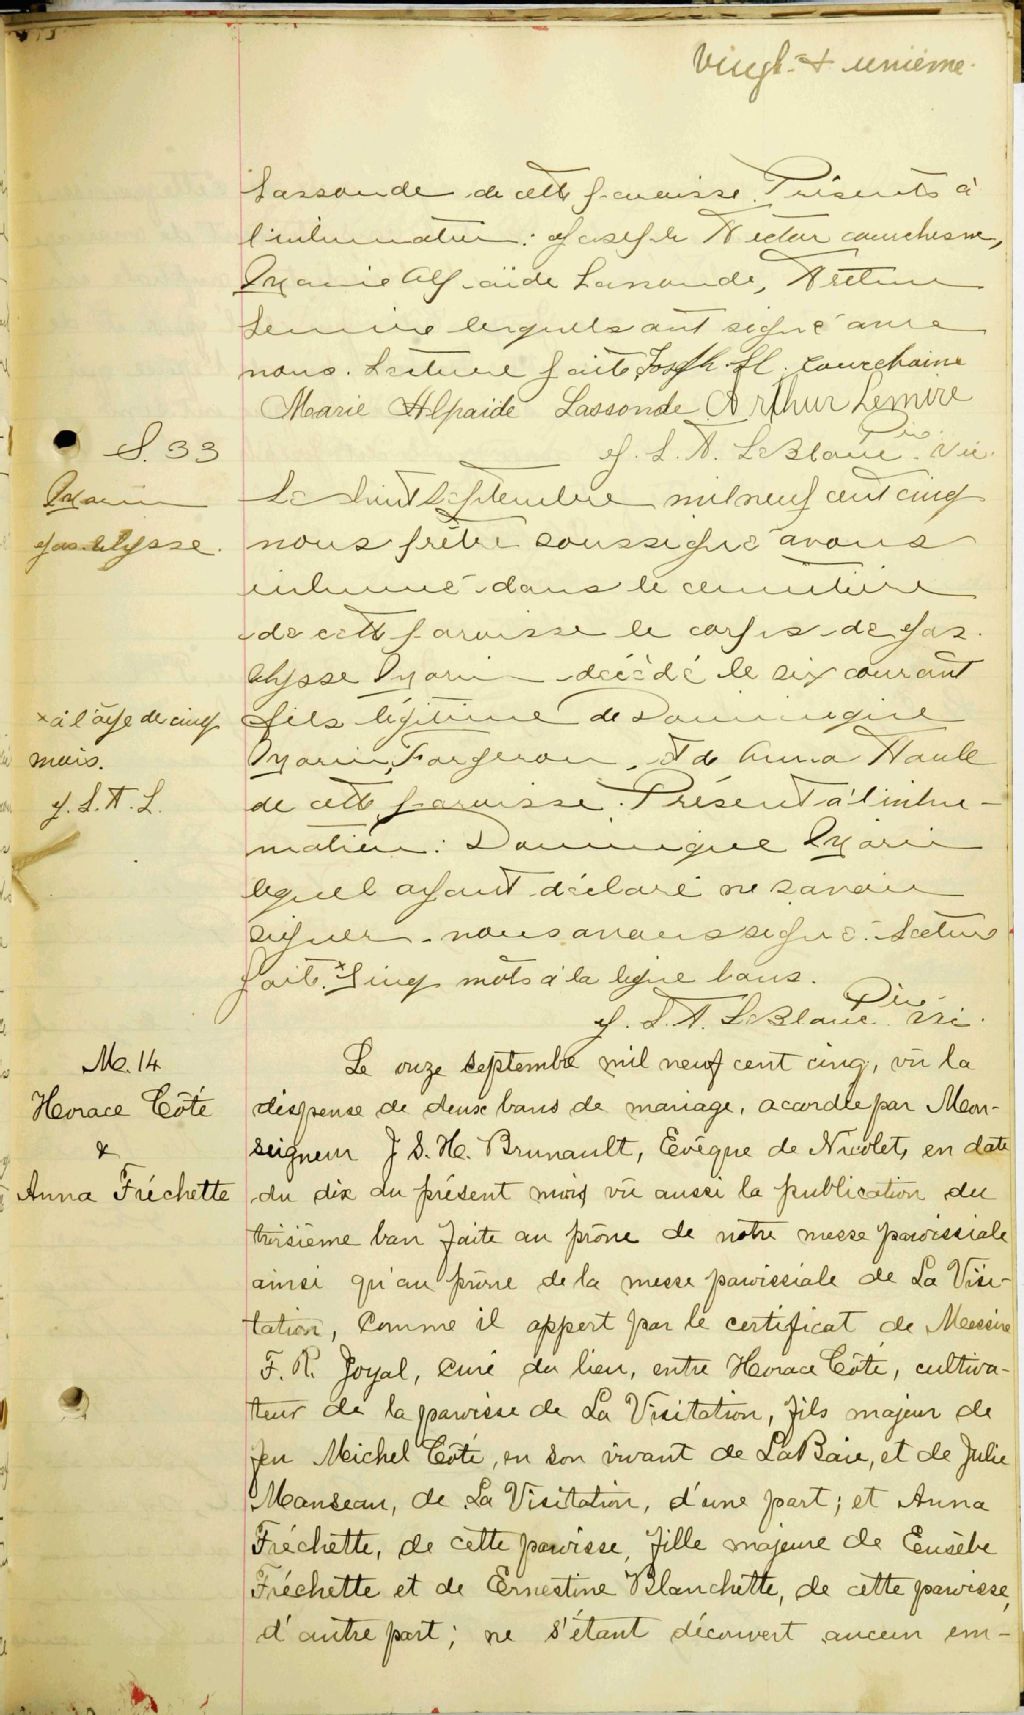 Vingt & unième.
Lassonde de cette paroisse. Présents à
l'inhumation: Joseph Hector courchesne,
Marie Alpaïde Lassonde, Arthur
Lemire lesquels ont signé avec
nous. Lecture faite. Joseph. H. Courchaine
Marie Alpaïde Lassonde Arthur Lemire
J. L. A. LeBlanc. Ptre Vic.
S. 33
Marin
Jos. Ulysse.
Le huit Septembre mil neuf cent cinq
nous prêtre soussigné avons
inhumé dans le cimetière
de cette paroisse le corps de Jos.
Ulysse Marin décédé le six courant
× à l'âge de cinq
mois.
J. L. A. L.
fils légitime de Dominique
Marin, Forgeron, et de Anna Houle
de cette paroisse. Présent à l'inhu-
mation: Dominique Marin
lequel ayant déclaré ne savoir
signer. nous avons signé. Lecture
faite. × Cinq mots à la ligne bons.
J. L. A. LeBlanc. Ptre Vic.
M. 14
Horace Côté
&
Anna Fréchette
Le onze septembre mil neuf cent cinq, vû la
dispense de deux bans de mariage, acordée par Mon-
seigneur J. S. H. Brunault, Evêque de Nicolet, en date
du dix du présent mois, vû aussi la publication du
troisième ban faite au prône de notre messe paroissiale
ainsi qu'au prône de la messe paroissiale de La Visi-
tation, comme il appert par le certificat de Messire
F. R. Joyal, curé du lieu, entre Horace Côté, cultiva-
teur de la paroisse de La Visitation, fils majeur de
feu Michel Côté, en son vivant de LaBaie, et de Julie
Manseau, de La Visitation, d'une part; et Anna
Fréchette, de cette paroisse, fille majeure de Eusèbe
Fréchette et de Ernestine Blanchette, de cette paroisse,
d'autre part; ne s'étant découvert aucun em-